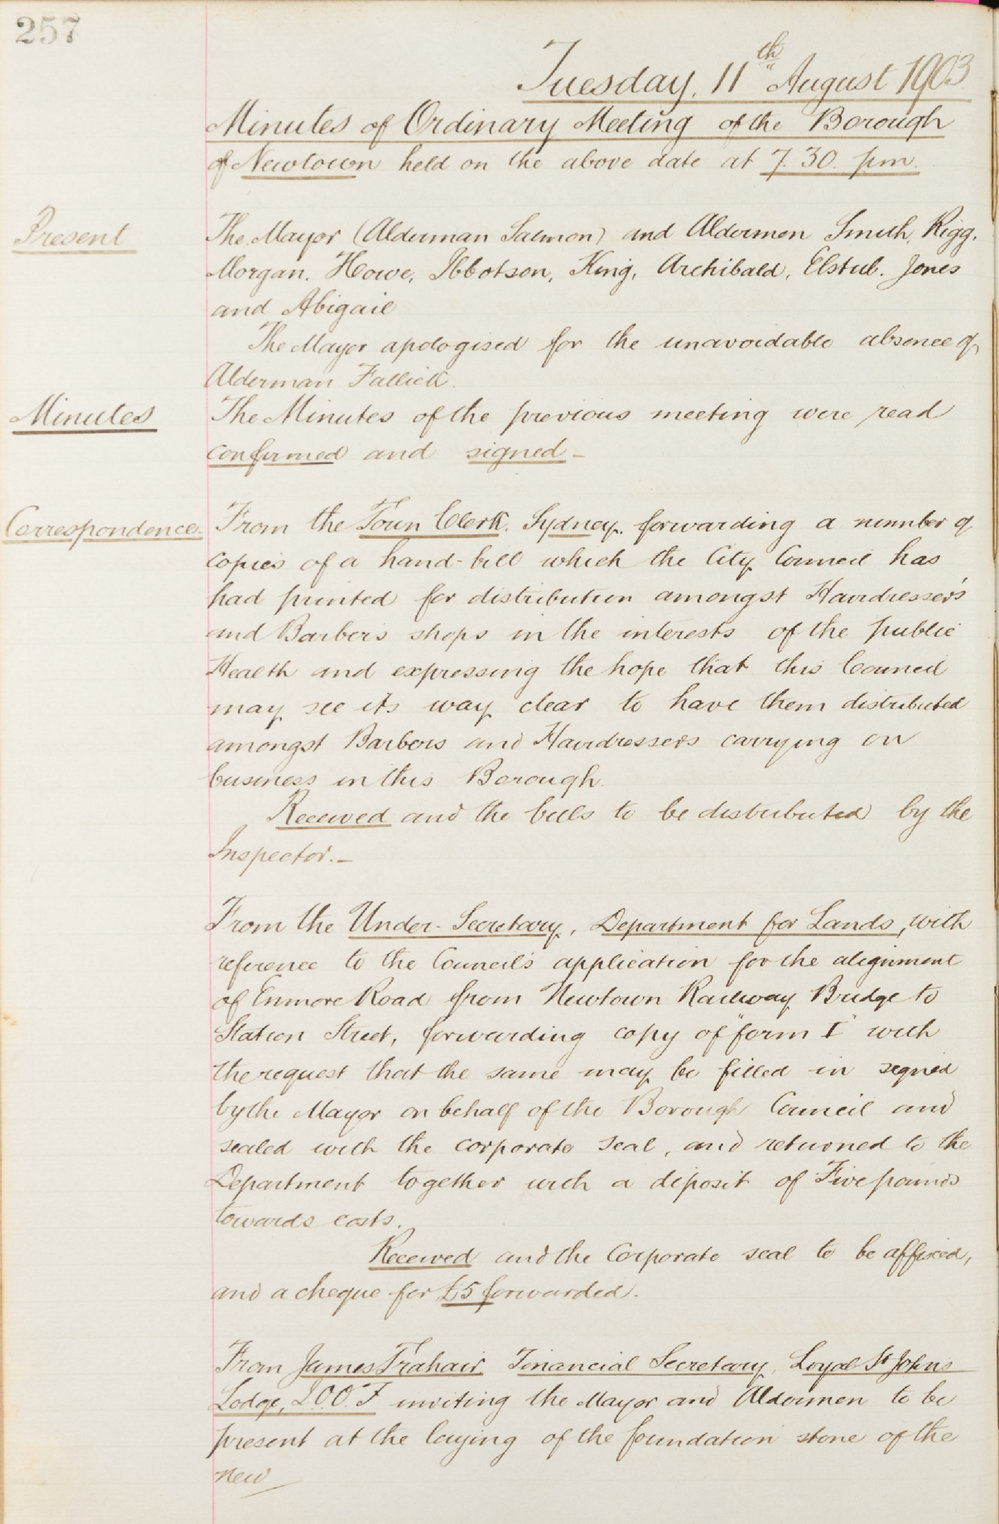 257
Tuesday, 11th August 1903
Minutes of Ordinary Meeting of the Borough
of Newtown held on the above date at 7.30. pm.
Present
The Mayor (Alderman Salmon) and Aldermen Smith, Rigg,
Morgan, Howe, Ibbotson, King, Archibald, Elstub. Jones
and Abigail
The Mayor apologised for the unavoidable absence of
Alderman Fallick.
Minutes
The Minutes of the previous meeting were read
confirmed and signed -
Correspondence.
From the Town Clerk. Sydney. forwarding a number of
copies of a hand-bill which the City Council has
had printed for distribution amongst Hairdresser's
and Barber's shops in the interests of the public
Health and expressing the hope that this Council
may see its way clear to have them distributed
amongst Barbers and Hairdressers carrying on
business in this Borough.
Received and the bills to be distributed by the
Inspector. -
From the Under-Secretary, Department for Lands, with
reference to the Council's application for the alignment
of Enmore Road from Newtown Railway Bridge to
Station Street, forwarding copy of "form I" with
the request that the same may be filled in signed
by the Mayor on behalf of the Borough Council and
sealed with the corporate seal, and returned to the
Department together with a deposit of Five pounds
towards costs.
Received and the Corporate seal to be affixed,
and a cheque for £5 forwarded.
From James Trahair, Financial Secretary, Loyal St John's
Lodge, I.O.O.F inviting the Mayor and Aldermen to be
present at the laying of the foundation stone of the
new